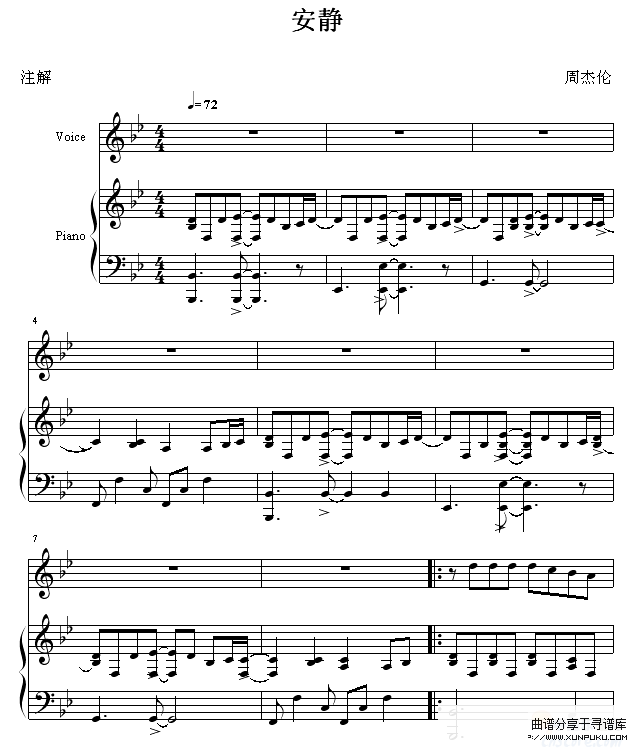 安静
注解 周杰伦
= 72
Voice
4
4
Piano
4
4
4
4
4
7
曲谱分享于寻谱库
WWW.XUNPUKU.COM